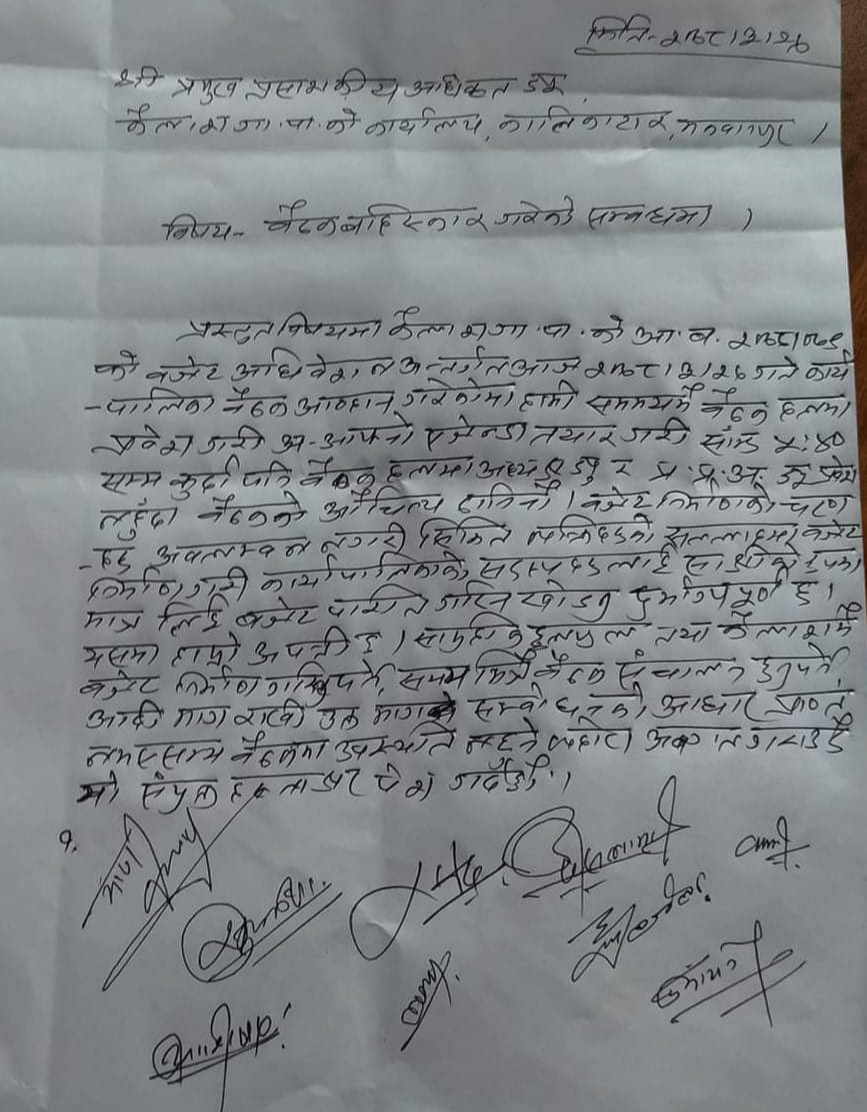 मिति- २०७८।३।२६
श्री प्रमुख प्रसाशकीय अधिकृत ज्यू,
कैलाश गा.पा.को कार्यालय, कालिकाटार, मकवानपुर ।
विषय- बैठक बहिस्कार गरेको सम्बन्धमा ।
प्रस्तुत विषयमा कैलाश गा.पा. को आ.व. २०७८।०७९
को बजेट अधिवेशन अन्तर्गत आज २०७८।३।२६ गते कार्य
-पालिका बैठक आव्हान गरेकोमा हामी समयमै बैठक हलमा
प्रवेश गरी अ-आफ्नो एजेन्डा तयार गरी साँझ ५:४०
सम्म कुर्दा पनि बैठक हलमा अध्यक्ष ज्यु र प्र.प्र.अ. ज्यू प्रवेश
नहुँदा बैठकको औचित्य ठानिनौं । बजेट निर्माणको चरण
-हरु अवलम्वन नगरी सिमित व्यक्तिहरुको सल्लाहमा बजेट
निर्माण गरी कार्यपालिकाका सदस्यहरुलाई साक्षीको रुपमा
मात्र लिई बजेट पारित गर्न खोज्नु दुर्भाग्यपूर्ण छ ।
यसमा हाम्रो आपत्ती छ । सामुहिक छलफल तथा कैलाशमै
बजेट निर्माण गरिनुपर्ने, समय भित्रै बैठक संचालन हुनुपर्ने,
आदी माग राखी उक्त मागको सम्बोधनको आधार प्राप्त
नभएसम्म बैठकमा उपस्थिति नहुने व्यहोरा अवगत गराउँदै
यो संयुक्त हस्ताक्षर पेश गर्दछौं ।
१.